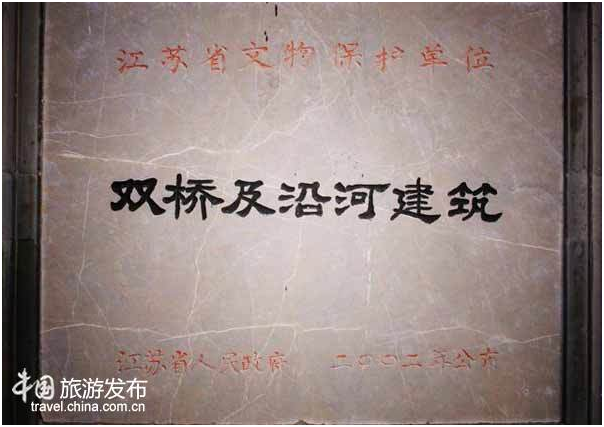 江苏省文物保护单位
双桥及沿河建筑
江苏省人民政府 二〇〇二年公布
中国旅游发布
travel.china.com.cn